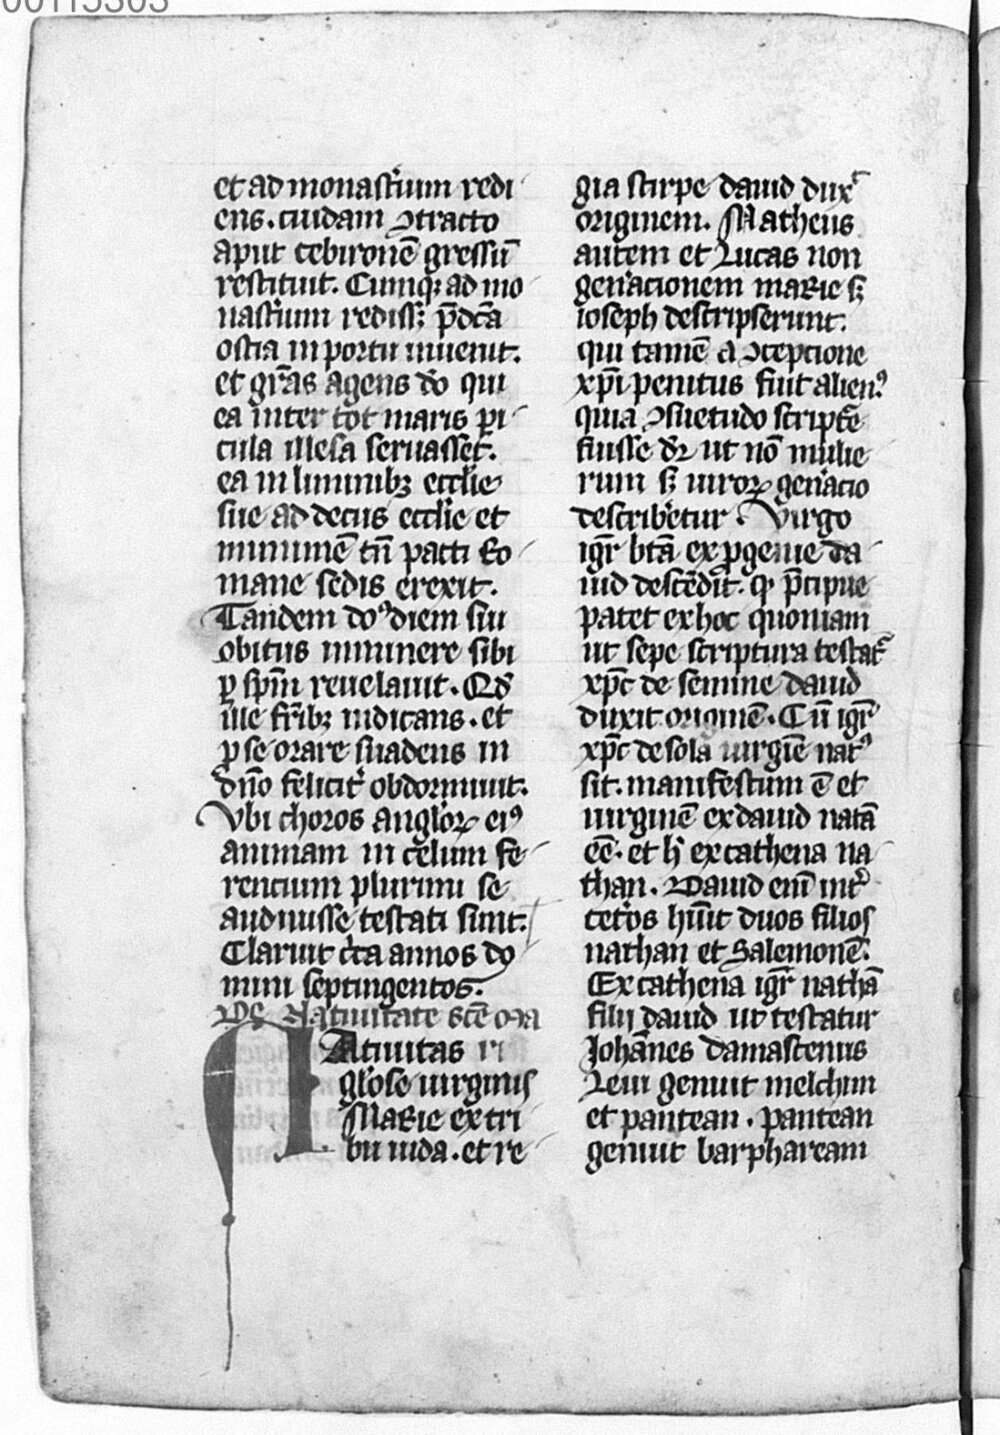 00115303
et ad monast͛ium redi
ens. cuidam ↄtracto
aput cebironē gressū
restituit. Cumqꝫ ad mo
nast͛ium redissꝫ p̄dc̄a
ostia in portu inuenit.
et gr̄as agens d̄o qui
ea inter tot maris pi
cula illesa seruasset.
ea in liminibꝫ eccl̄ie
sue ad decus eccl̄ie et
minimē tn̄ pacti Ro
mane sedis erexit.
Tandem do⁹ diem sui
obitus imminere sibi
ꝑ sp̄m reuelauit. Qd̄
ille fr̄ibꝫ indicans. et
ꝓ se orare suadens in
dn̄o felicit͛ obdormiuit.
Vbi choros angl̓oꝝ ei⁹
animam in celum fe
rencium plurimi se
audiuisse testati sunt.
Claruit c͛ca annos do
mini septingentos.
De Natiuitate sc̄e Ma
NAtiuitas
gl̓ose uirginis
MaRie ex tri
bu iuda. et re
gia stirpe dauid dux͛
originem. Matheus
autem et Lucas non
gen͛acionem maRie sꝫ
ioseph descripserunt.
qui tamē a ↄcepcione
xp̄i penitus fuit alien⁹
quia ↄsuetudo script͛e
fuisse dr̄ ut nō mulie
rum sꝫ uiroꝝ gen͛acio
describ͛etur. Virgo
igr̄ bt̄a ex ꝓgenie da
uid descēdit. qꝫ p̄cipue
patet ex hoc quoniam
ut sepe scriptura testat͛
xp̄c de semine dauid
duxit originē. Cū igr̄
xp̄c de sola uirgīe nat⁹
sit. manifestum ē et
uirginē ex dauid natā
eē. et h̓ ex cathena na
than. Dauid em̄ int͛
cet͛os hūit duos filios
nathan et Salemonē.
Ex cathena igr̄ nathā
filij dauid ut testatur
Johānes damascenus
Leui genuit melchim
et pantean. pantean
genuit barphaream